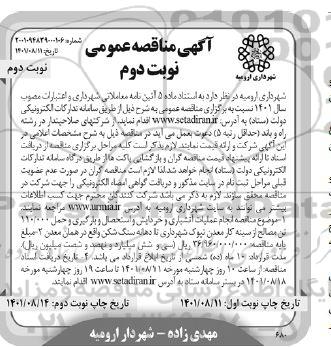 آگهی مناقصه عمومی
نوبت دوم
شماره: ۲۰۰۱۰۹۴۸۳۹۰۰۰۱۰۶
تاریخ: ۱۴۰۱/۰۸/۱۱
نوبت دوم
شهرداری ارومیه
شهرداری ارومیه در نظر دارد به استناد ماده ۵ آئین نامه معاملاتی شهرداری و اعتبارات مصوب
سال ۱۴۰۱ نسبت به برگزاری مناقصه عمومی به شرح ذیل از طریق سامانه تدارکات الکترونیکی
دولت (ستاد) به آدرس: www.setadiran.ir اقدام نماید. از شرکتهای صلاحیتدار در رشته
راه و باند (حداقل رتبه ۵) دعوت بعمل می آید در مناقصه ذیل به شرح مشخصات اعلامی در
این آگهی شرکت و ارائه قیمت نمایند. لازم بذکر است کلیه مراحل برگزاری مناقصه از دریافت
اسناد تا ارائه پیشنهاد قیمت مناقصه گران و بازگشائی پاکت ها از طریق درگاه سامانه تدارکات
الکترونیکی دولت (ستاد) انجام خواهد شد. لذا لازم است مناقصه گران در صورت عدم عضویت
قبلی مراحل ثبت نام در سایت مذکور و دریافت گواهی امضاء الکترونیکی را جهت شرکت در
مناقصه محقق سازند. لازم به ذکر می باشد شرکت کنندگان محترم جهت کسب اطلاعات
بیشتر می توانند به سایت شهرداری ارومیه به آدرس www.urmia.ir مراجعه نمایند.
۱-موضوع مناقصه: انجام عملیات آتشباری و خردایش و استحصال و بارگیری و حمل ۱۹۰۰۰۰
تن مصالح از سینه کار معدن نیوک شهرداری تا دهانه سنگ شکن واقع در همان معدن ۲-مبلغ
پایه مناقصه: ۳۶/۹۶۰/۰۰۰/۰۰۰ ریال (سی و شش میلیارد و نهصد و شصت میلیون ریال).
مدت قرارداد ۱۰ ماه (ده) شمسی از تاریخ ابلاغ قرارداد می باشد. ۴- تاریخ دریافت اسناد
مناقصه: از ساعت ۱۰ روز چهارشنبه مورخه ۱۴۰۱/۰۸/۱۱ تا ساعت ۱۹ روز چهارشنبه مورخه
۱۴۰۱/۰۸/۱۸ در بستر سامانه ستاد به آدرس www.setadiran.ir
تاریخ چاپ نوبت اول: ۱۴۰۱/۰۸/۱۱ تاریخ چاپ نوبت دوم: ۱۴۰۱/۰۸/۱۴
مهدی زاده - شهردار ارومیه
۶۸۰